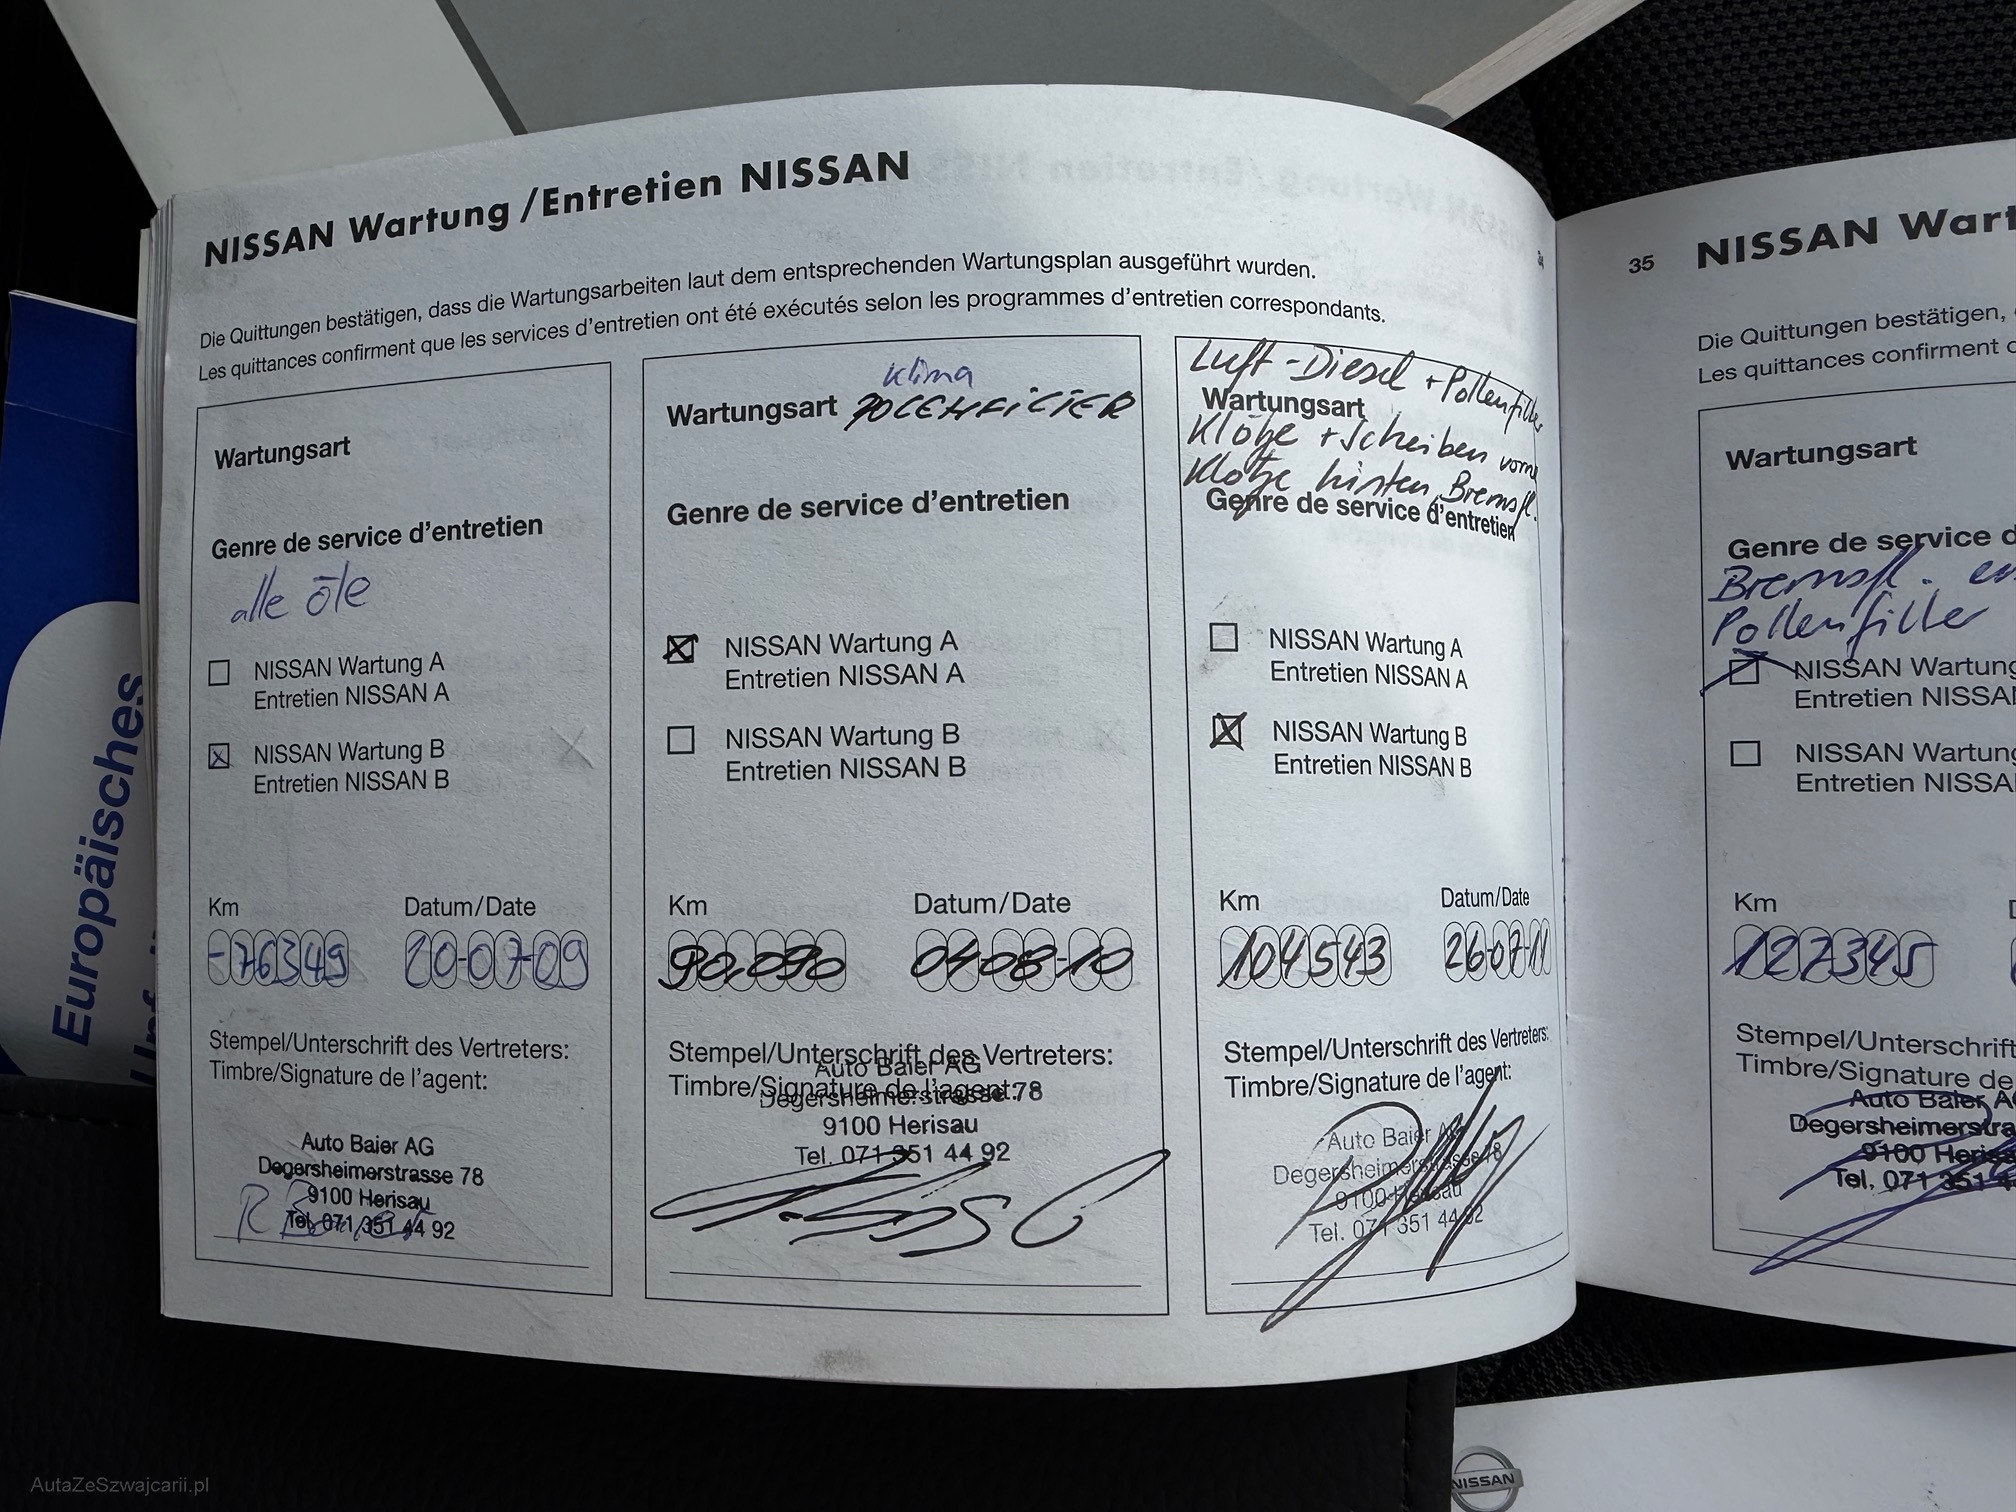 NISSAN Wartung / Entretien NISSAN
Die Quittungen bestätigen, dass die Wartungsarbeiten laut dem entsprechenden Wartungsplan ausgeführt wurden.
Les quittances confirment que les services d'entretien ont été exécutés selon les programmes d'entretien correspondants.
Wartungsart
Genre de service d'entretien
alle öle
NISSAN Wartung A
Entretien NISSAN A
NISSAN Wartung B
Entretien NISSAN B
Km Datum/Date
-76349 20-07-09
Stempel/Unterschrift des Vertreters:
Timbre/Signature de l'agent:
Auto Baier AG
Degersheimerstrasse 78
9100 Herisau
Tel. 071 351 44 92
Klima
Wartungsart POLENFILTER
Genre de service d'entretien
NISSAN Wartung A
Entretien NISSAN A
NISSAN Wartung B
Entretien NISSAN B
Km Datum/Date
90,090 04-08-10
Stempel/Unterschrift des Vertreters:
Timbre/Signature de l'agent:
Auto Baier AG
Degersheimerstrasse 78
9100 Herisau
Tel. 071 351 44 92
Luft-Diesel + Pollenfilter
Wartungsart
Klötze + Scheiben vorne
Klötze hinten, Bremsfl.
Genre de service d'entretien
NISSAN Wartung A
Entretien NISSAN A
NISSAN Wartung B
Entretien NISSAN B
Km Datum/Date
104543 26-07-11
Stempel/Unterschrift des Vertreters:
Timbre/Signature de l'agent:
Auto Baier AG
Degersheimerstrasse 78
9100 Herisau
Tel. 071 351 44 92
35 NISSAN Wart
Die Quittungen bestätigen,
Les quittances confirment
Wartungsart
Genre de service d
Bremsfl.
Pollenfilter
NISSAN Wartung
Entretien NISSA
NISSAN Wartung
Entretien NISSA
Km
127345
Stempel/Unterschrift
Timbre/Signature de
Auto Baier A
Degersheimerstra
9100 Herisa
Tel. 071 351 4
Europäisches
NISSAN
AutaZeSzwajcarii.pl